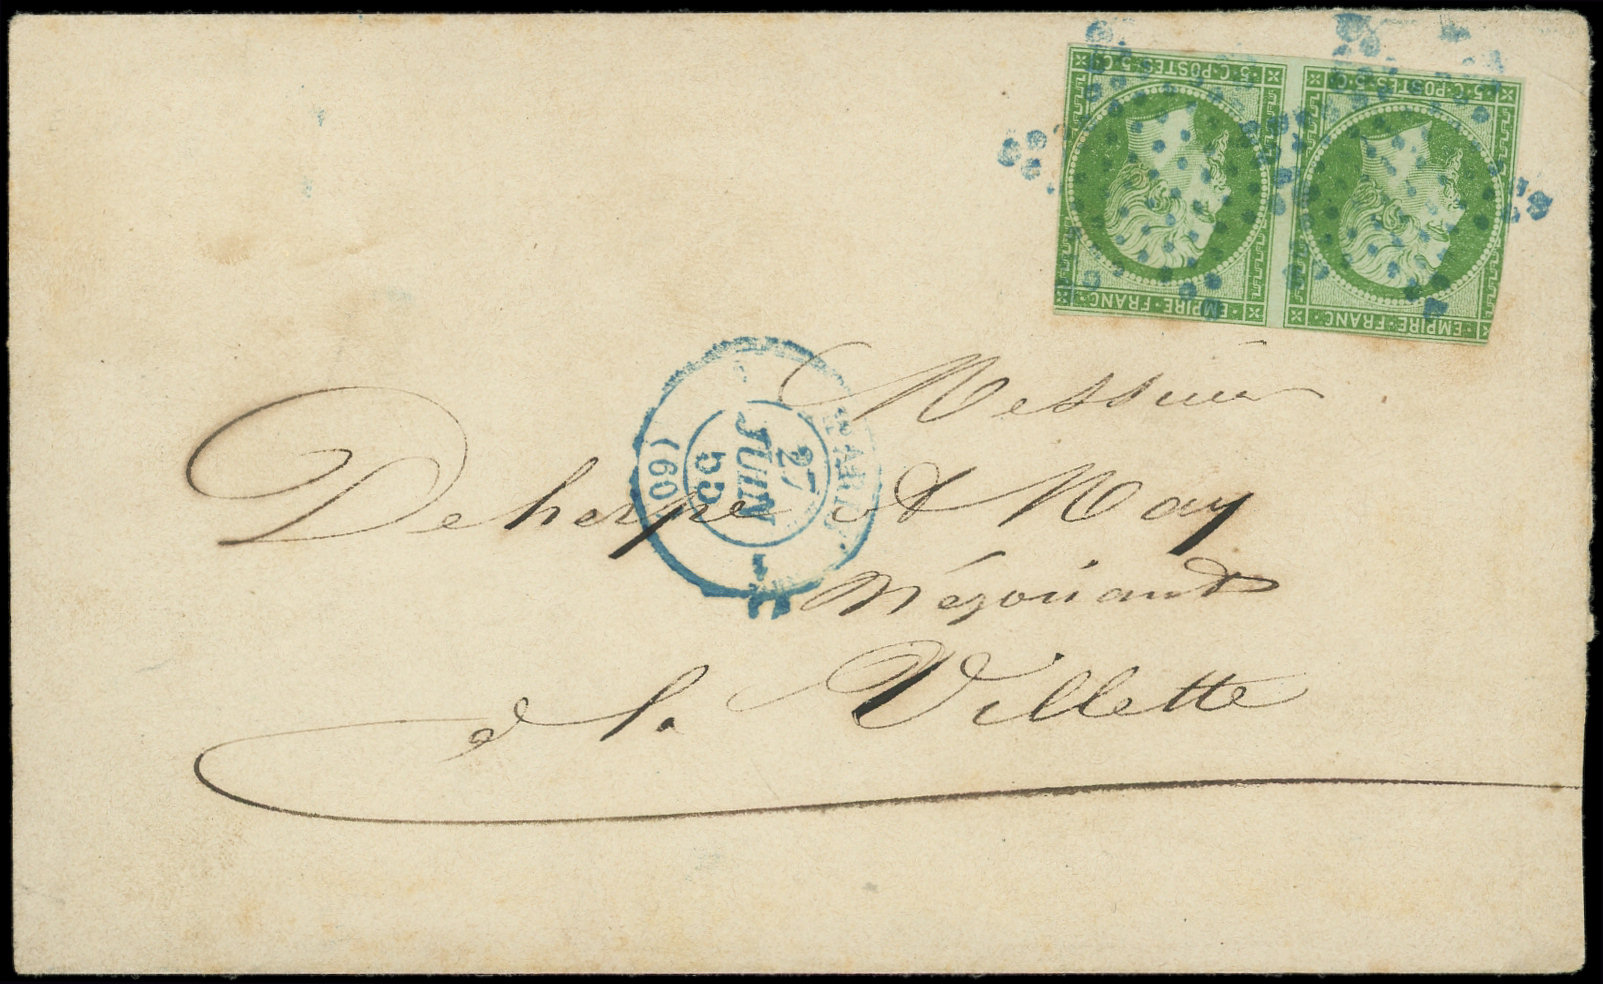 5·C·POSTES·5·C·
EMPIRE·FRANC·
5·C·POSTES·5·C·
EMPIRE·FRANC·
PARIS
27
JUIN
55
(60)
Messieurs
Deherpe & May
Négociants
à la Villette